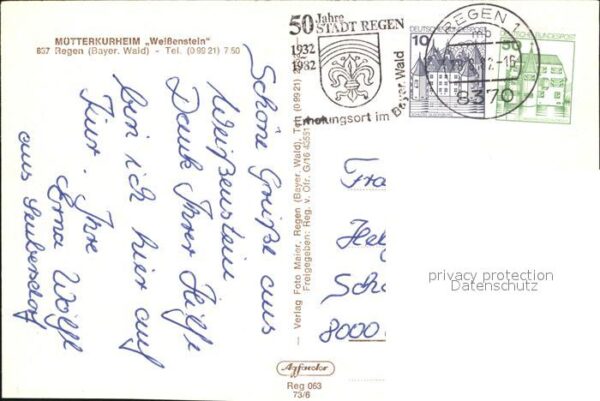 MÜTTERKURHEIM „Weißenstein"
837 Regen (Bayer. Wald) - Tel. (0 99 21) 7 50
50 Jahre
STADT REGEN
1932
1982
Erholungsort im
Bayer. Wald
DEUTSCHE BUNDESPOST
10
DEUTSCHE BUNDESPOST
50
REGEN 1
mb
8370
Schöne Grüße aus
Weißenstein
Dank Ihrer Hilfe
bin ich hier auf
Kur. Ihre
Erna Wölfl
aus Seubersdorf
— Verlag Foto Maier, Regen (Bayer. Wald), Tel. (0 99 21)
Freigegeben: Reg. v. Ofr. G/16
Fra
He
Sch
8000
privacy protection
Datenschutz
Agfacolor
Reg 063
73/6